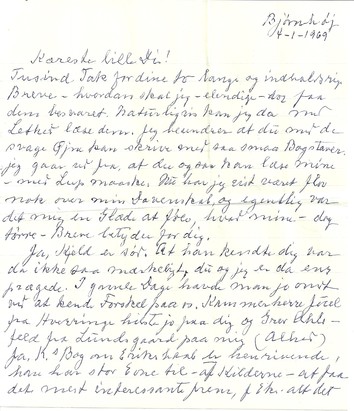 Björnhøj
4-1-1969
Kæreste lille Di!
Tusind Tak for dine to lange og indholdsrige
Breve – hvordan skal jeg – elendige – dog faa
dem besvaret. Naturligvis kan jeg da med
Lethed læse dem. Jeg beundrer at du med de
svage Øjne kan skrive med saa smaa Bogstaver.
jeg gaar ud fra, at du ogsaa kan læse mine
– med Lup maaske. Nu har jeg vist været flov
nok over min Dovenskab, og egentlig var
det mig en Glæde at føle, hvad mine – dog
tørre – Breve betyder for dig.
Ja, Kjeld er sød. At han kendte dig var
da ikke saa mærkeligt, du og jeg er da ens
prægede. I gamle Dage havde man jo ondt
ved at kende Forskel paa os. Kammerherre Juel
fra Hverringe hilste jo paa dig og Grev
feld fra Lundsgaard paa mig
Ja, K.s Bog om Erikshaab er henrivende,
han har stor Evne til – af Kilderne – at faa
det mest interessante frem, f. Eks. alt det